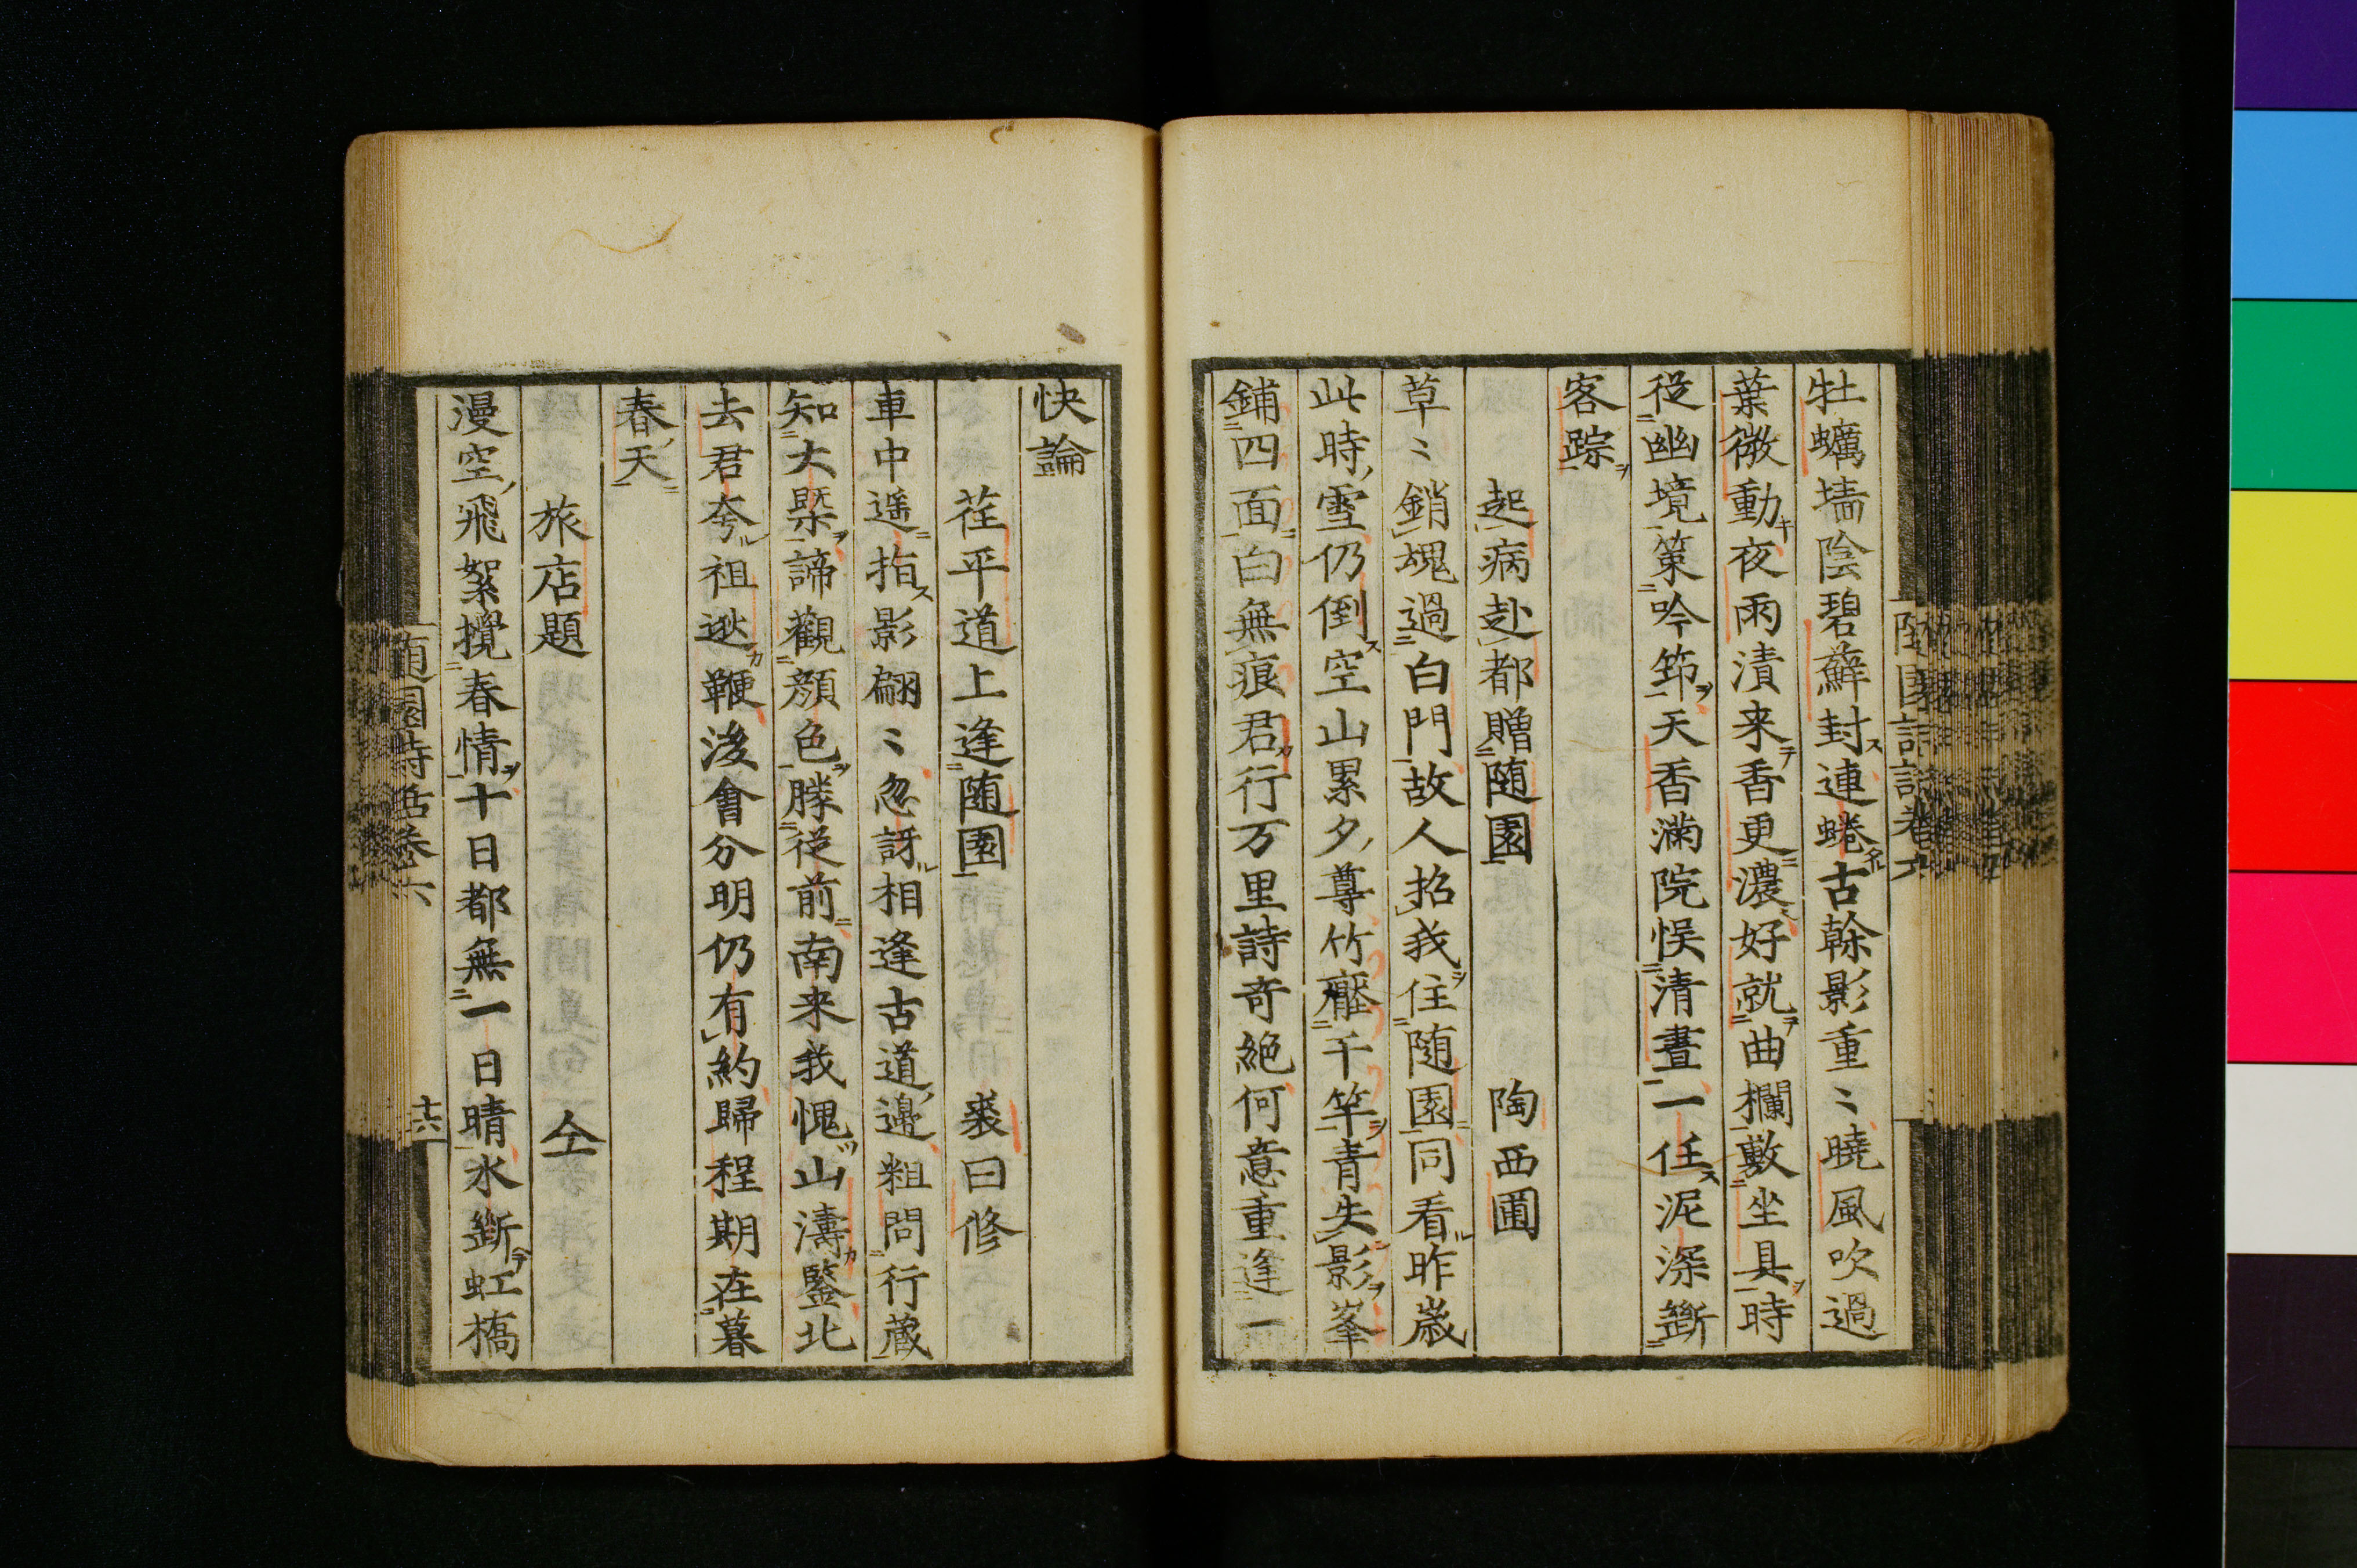 牡蠣墻陰碧蘚封連蜷古榦影重〻曉風吹過
葉微動夜雨漬来香更濃好就曲欄敷坐具時
從幽境策吟筇天香滿院悮清晝一任泥深斷
客踪
起病赴都贈随園 陶西圃
草〻銷魂過白門故人招我住随園同看昨歳
此時雪仍倒空山累夕尊竹壓千竿青失影峯
鋪四面白無痕君行万里詩奇絶何意重逢一
快論
茌平道上逢随園 裘曰修
車中遥指影翩〻忽訝相逢古道邊粗問行蔵
知大槩諦觀顔色勝從前南来我愧山濤鑒北
去君夸祖逖鞭後會分明仍有約歸程期在暮
春天
旅店題 仝
漫空飛絮攪春情十日都無一日晴氷斷虹橋
随園詩話巻六
十六